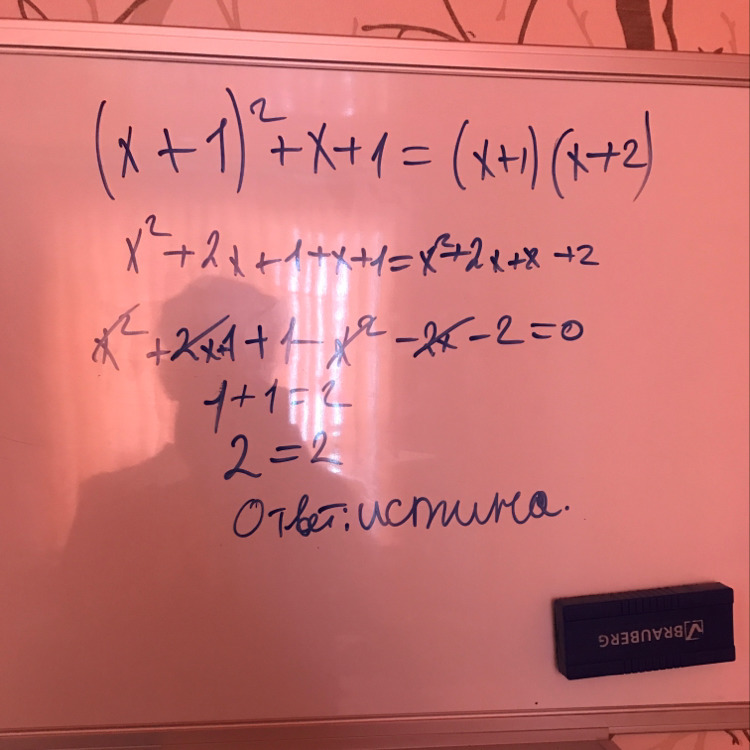 (x+1)²+x+1=(x+1)(x+2)
x²+2x+1+x+1=x²+2x+x+2
x²+2x+1+1-x²-2x-2=0
1+1=2
2=2
Ответ: истина.
BRAUBERG